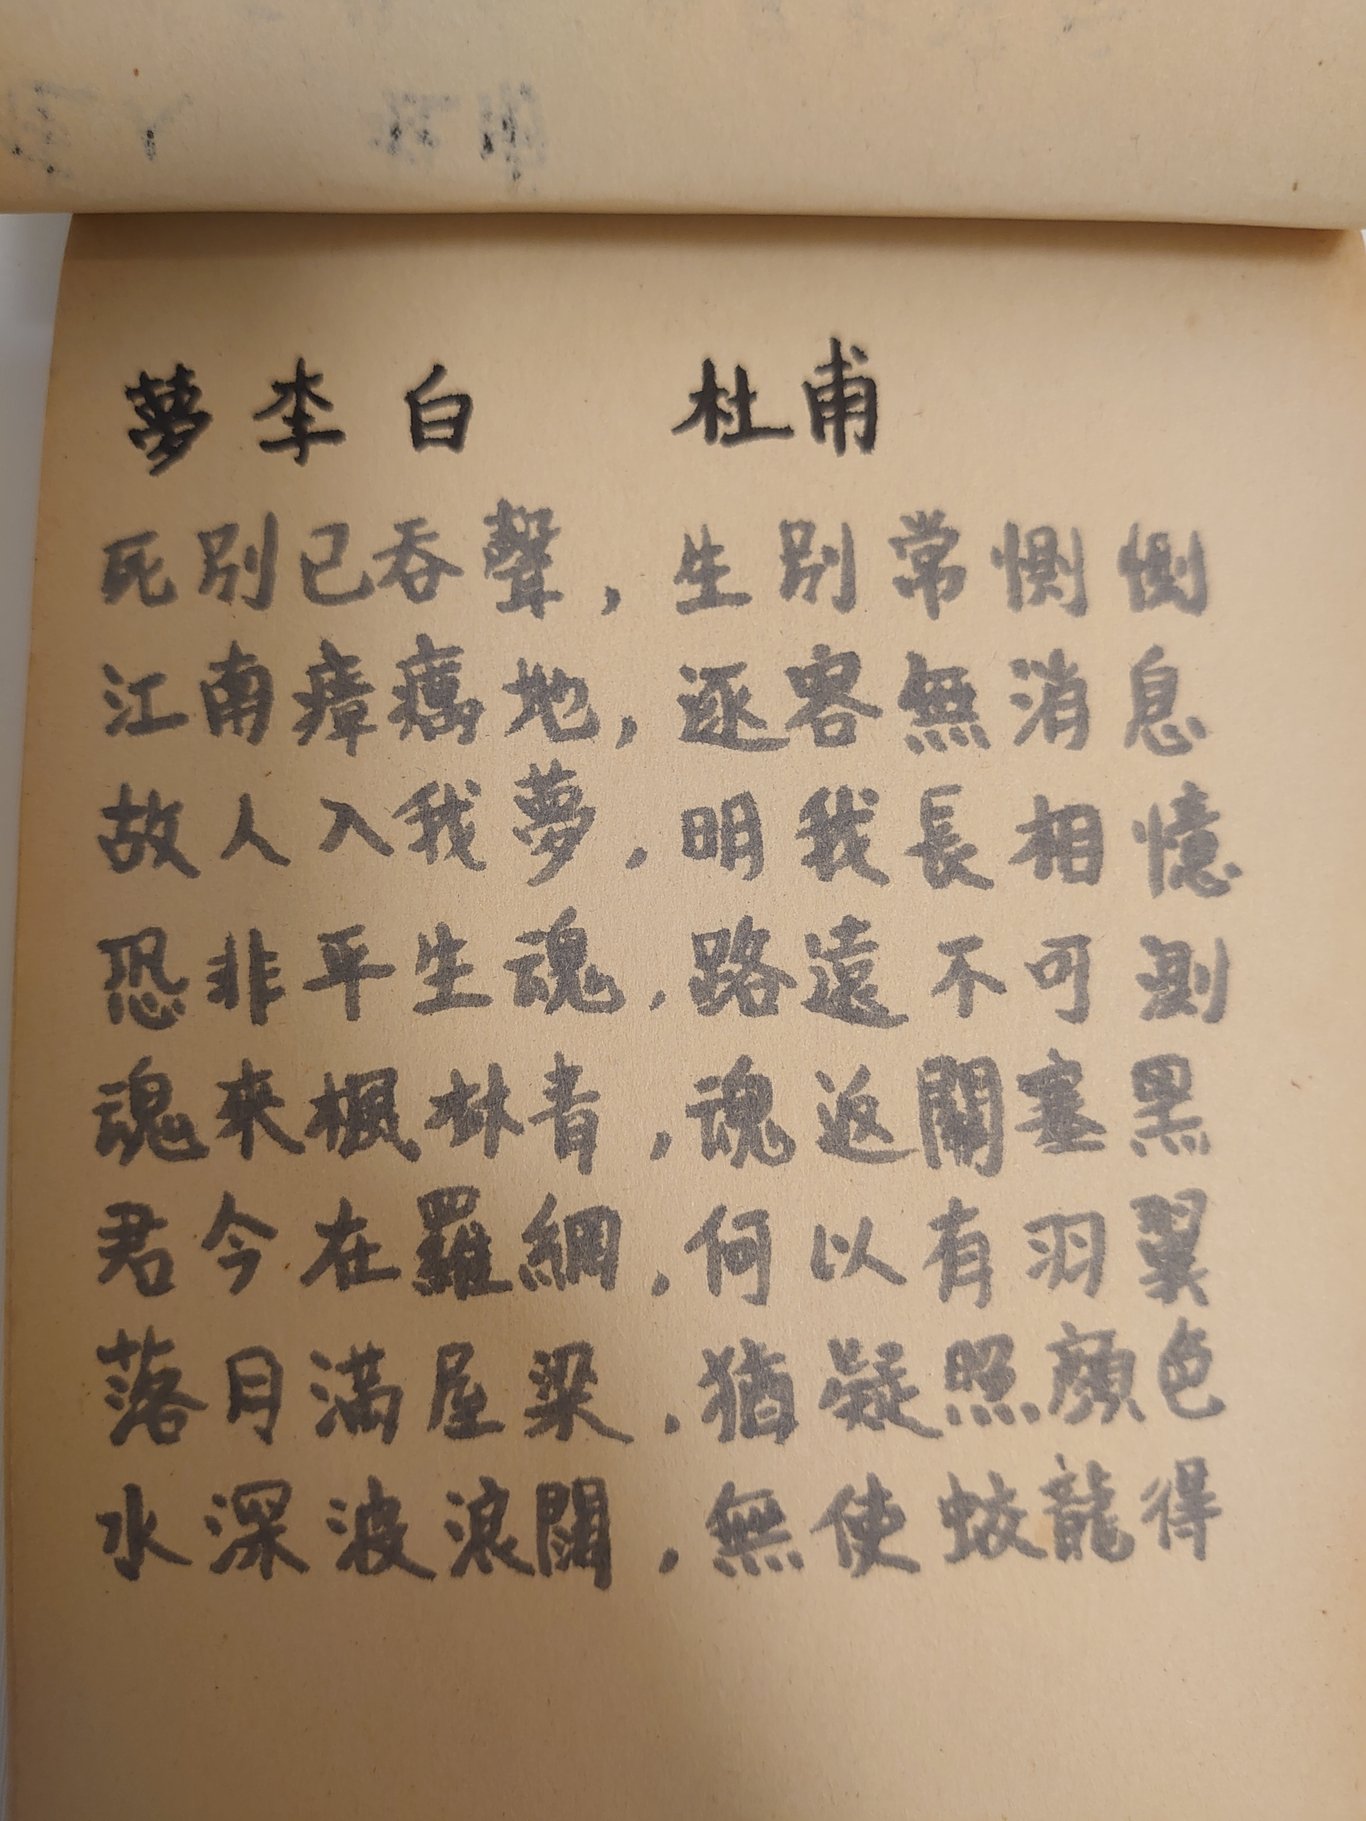 夢李白 杜甫
死別已吞聲，生別常惻惻
江南瘴癘地，逐客無消息
故人入我夢，明我長相憶
恐非平生魂，路遠不可測
魂來楓林青，魂返關塞黑
君今在羅網，何以有羽翼
落月滿屋梁，猶凝照顏色
水深波浪闊，無使蛟龍得